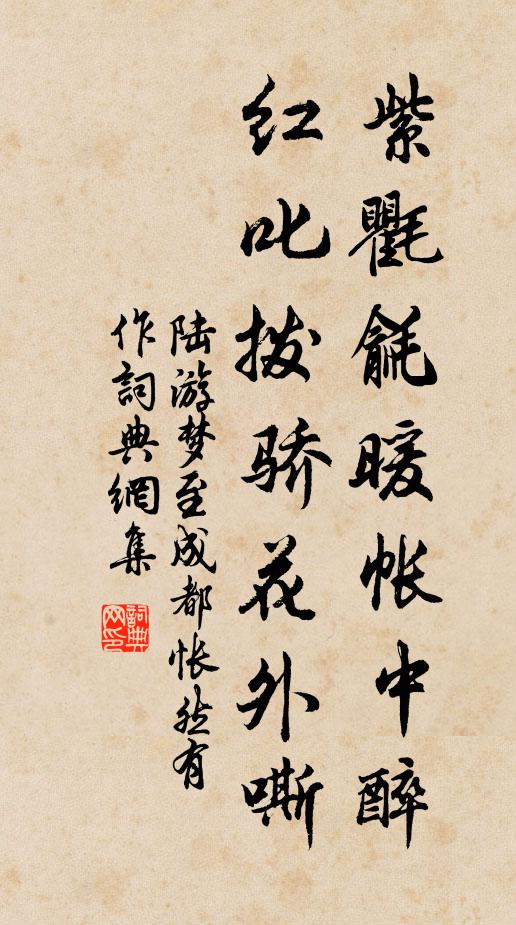 紫氍毹暖帐中醉
红叱拨骄花外嘶
陆游梦至成都怅然有
作詞典網集
詞典
网印